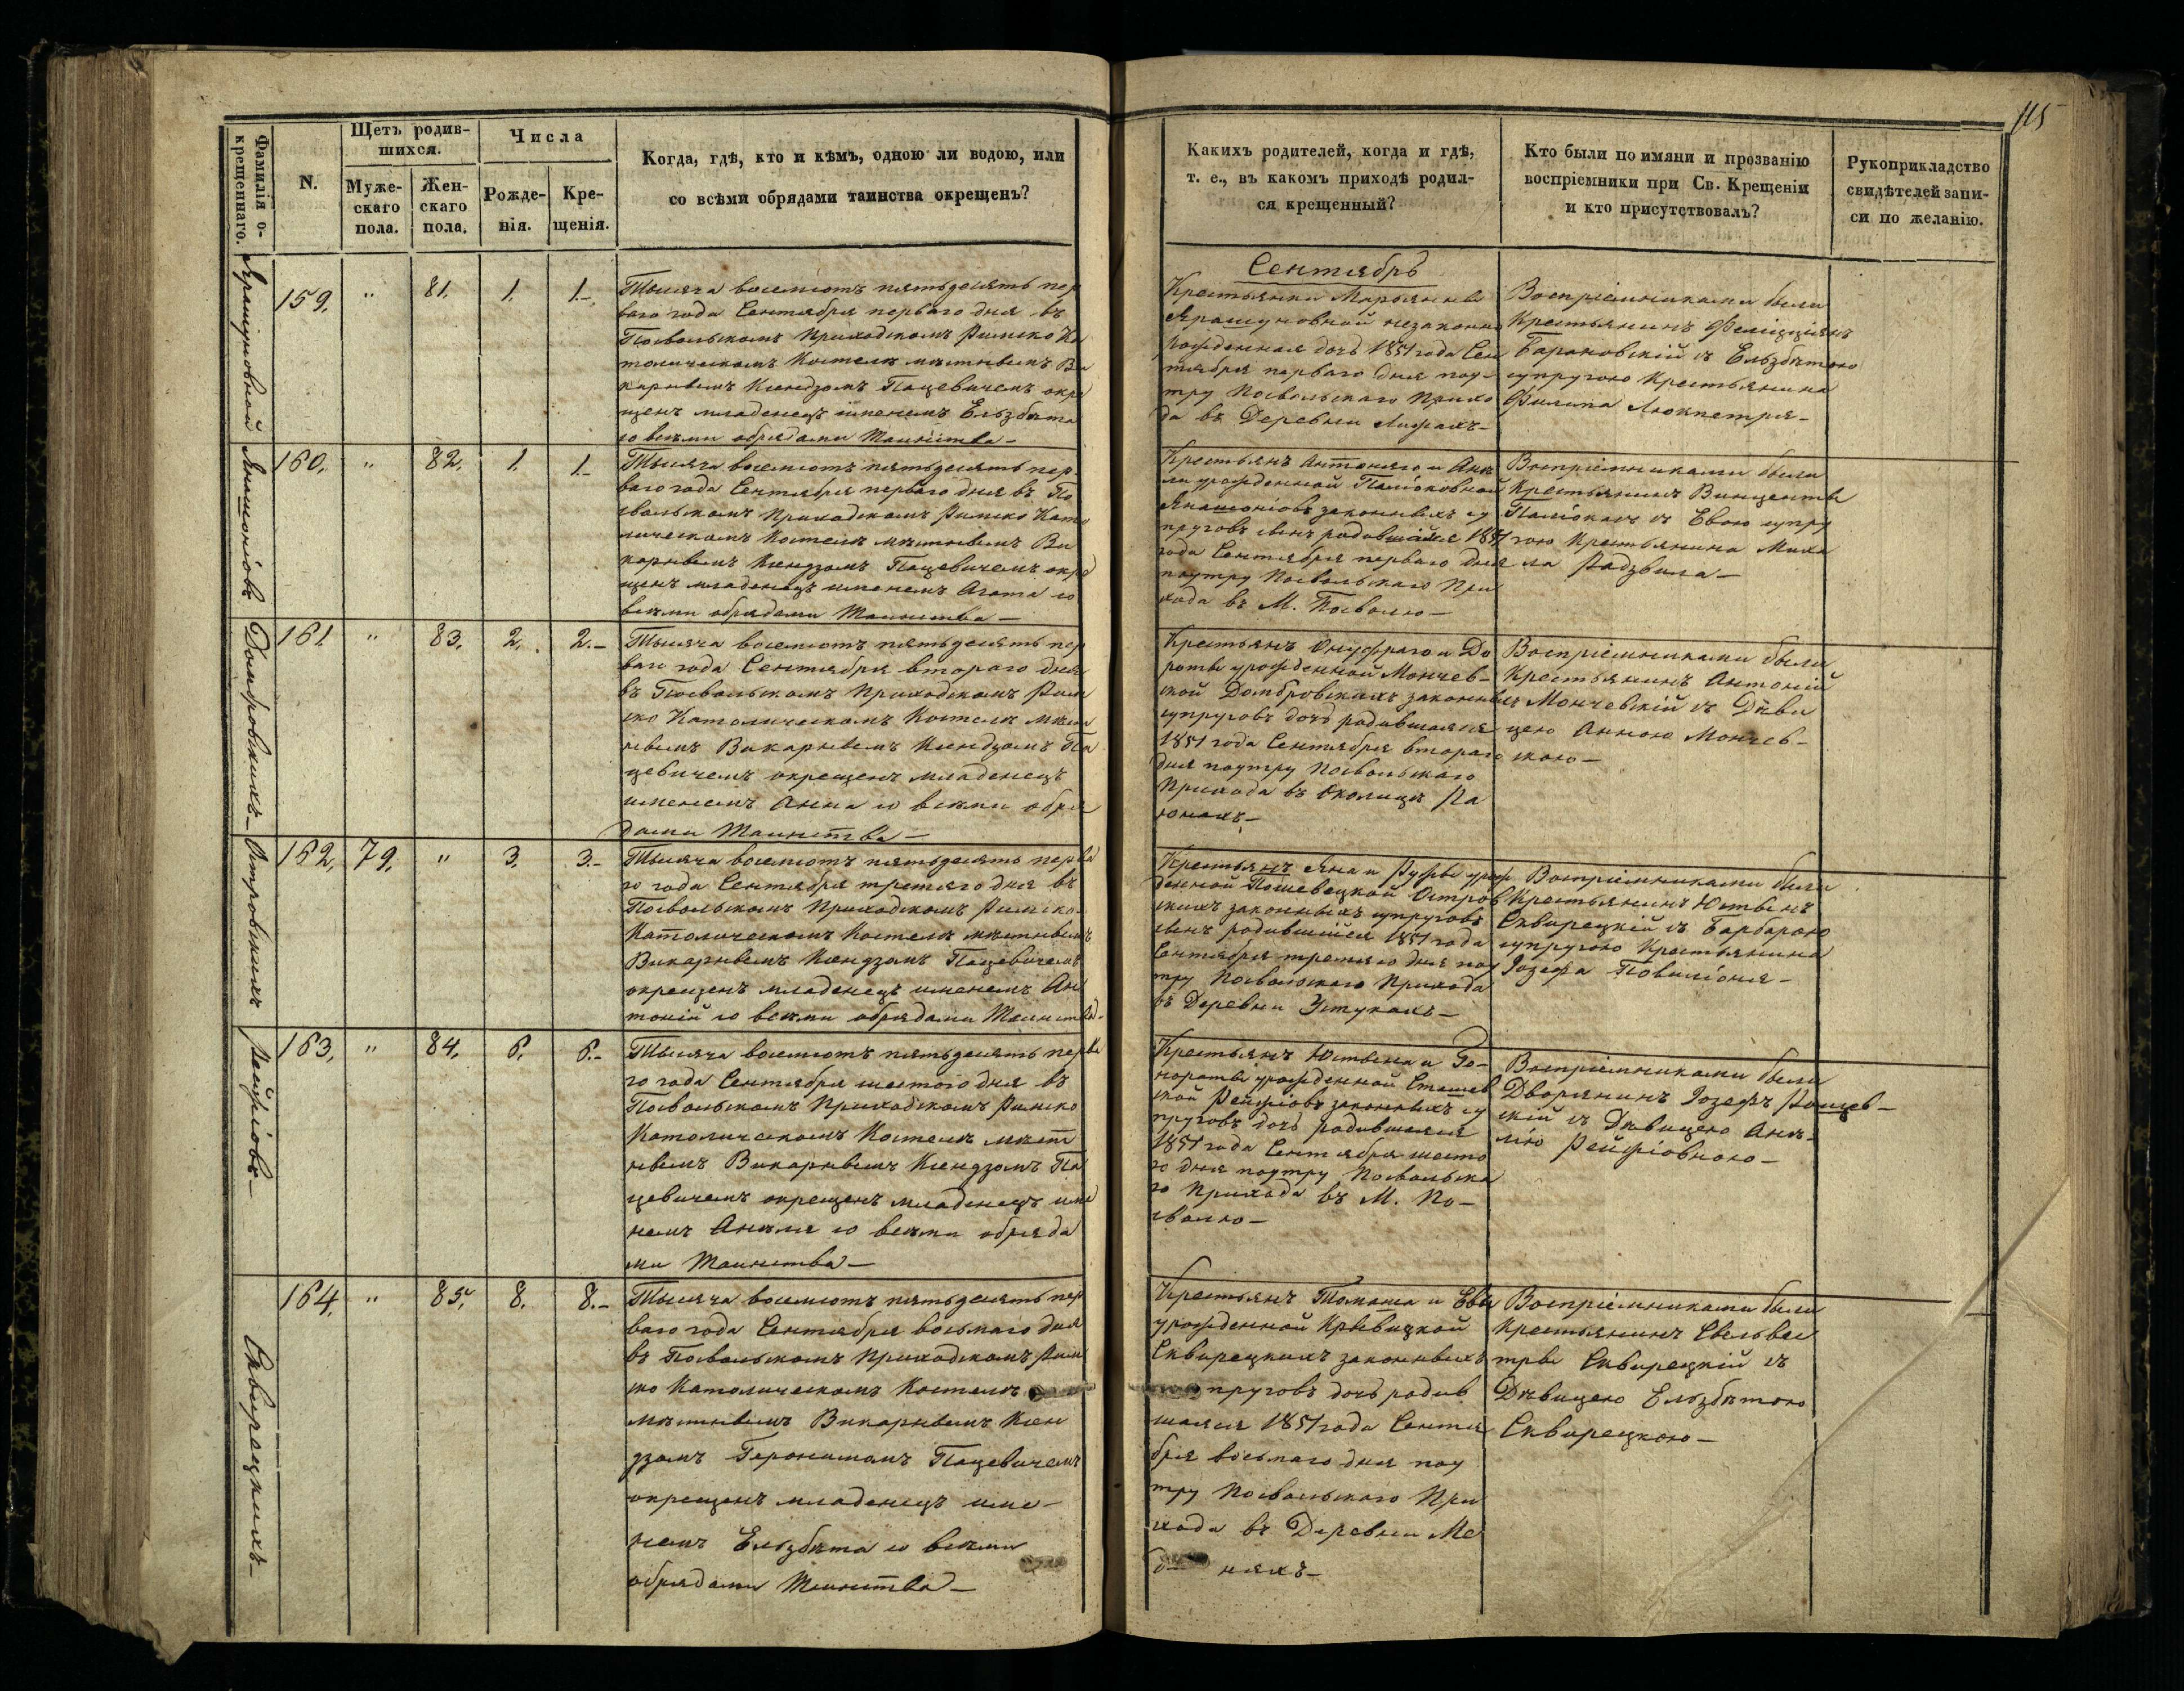 115
Фамилія о-
крещеннаго.
N.
Щетъ родив-
шихся.
Муже-
скаго
пола.
Жен-
скаго
пола.
Числа
Рожде-
нія.
Кре-
щенія.
Когда, гдѣ, кто и кѣмъ, одною ли водою, или
со всѣми обрядами таинства окрещенъ?
Какихъ родителей, когда и гдѣ,
т. е., въ какомъ приходѣ родил-
ся крещенный?
Кто были по имяни и прозванію
воспріемники при Св. Крещеніи
и кто присутствовалъ?
Рукоприкладство
свидѣтелей запи-
си по желанію.
Сентябрь
159. " 81. 1. 1.–
Тысяча восемсотъ пятьдесятъ пер
ваго года Сентября перваго дня въ
Посвольскомъ Приходскомъ Римско Ка
толическомъ Костелѣ мѣстнымъ Ви
карнымъ Ксендзомъ Пацевичемъ окре
щенъ младенецъ именемъ Ельзбѣта
со всѣми обрядами Таинства –
Крестьянки Марьянны
незаконно
рожденная дочь 1851 года Сен
тября перваго дня поу-
тру Посвольскаго Прихо
да въ Деревни
Воспріемниками были
Крестьянинъ Фелиціянъ
Барановскій съ Ельзбѣтою
супругою Крестьянина
Филипа
Янашоніовъ
160. " 82. 1. 1.–
Тысяча восемсотъ пятьдесятъ пер
ваго года Сентября перваго дня въ По
свольскомъ Приходскомъ Римско Като
лическомъ Костелѣ мѣстнымъ Ви
карнымъ Ксендзомъ Пацевичемъ окре
щенъ младенецъ именемъ Агата со
всѣми обрядами Таинства –
Крестьянъ Антоняго и Анѣ
ли урожденной Паліоковной
Янашоніовъ законныхъ су
пруговъ 1851
года Сентября перваго дня
поутру Посвольскаго При
хода въ М. Посволю –
Воспріемниками были
Крестьянинъ Винценты
Паліокасъ съ Евою супру
гою Крестьянина Миха
ла Радзвила –
Домбровскихъ –
161. " 83. 2. 2.–
Тысяча восемсотъ пятьдесятъ пер
ваго года Сентября втораго дня
въ Посвольскомъ Приходскомъ Рим
ско Католическомъ Костелѣ мѣст
нымъ Викарнымъ Ксендзомъ Па
цевичемъ окрещенъ младенецъ
именемъ Анна со всѣми обря
дами Таинства –
Крестьянъ Онуфраго и До
роты урожденной Мончев-
ской Домбровскихъ законныхъ
супруговъ дочь родившаяся
1851 года Сентября втораго
дня поутру Посвольскаго
Прихода въ Околицѣ
Воспріемниками были
Крестьянинъ Антоній
Мончевскій съ Дѣви
цею Анною Мончев-
скою –
Островскихъ
162. 79. " 3. 3.–
Тысяча восемсотъ пятьдесятъ перва
го года Сентября третяго дня въ
Посвольскомъ Приходскомъ Римско
Католическомъ Костелѣ мѣстнымъ
Викарнымъ Ксендзомъ Пацевичемъ
окрещенъ младенецъ именемъ Ан
тоній со всѣми обрядами Таинства –
Крестьянъ Яна и Руфы урож
денной Пошевецкой Островс
кихъ законныхъ супруговъ
сынъ родившійся 1851 года
Сентября третяго дня поу
тру Посвольскаго Прихода
въ Деревни Устукахъ –
Воспріемниками были
Крестьянинъ Юстынъ
Скварецкій съ Барбарою
супругою Крестьянина
Іозефа Повиліоня –
Рейфіовъ –
163. " 84. 6. 6.–
Тысяча восемсотъ пятьдесятъ перва
го года Сентября шестого дня въ
Посвольскомъ Приходскомъ Римско
Католическомъ Костелѣ мѣст
нымъ Викарнымъ Ксендзомъ Па
цевичемъ окрещенъ младенецъ име
немъ Анѣля со всѣми обряда
ми Таинства –
Крестьянъ Юстына и Го-
нораты урожденной Сташев
ской Рейфіовъ законныхъ су
пруговъ дочь родившаяся
1851 года Сентября шесто
го дня поутру Посвольска
го Прихода въ М. По-
сволю –
Воспріемниками были
Дворянинъ Іозефъ
скій съ Дѣвицею Анѣ-
лію Рейфіовною –
Скварецкихъ –
164. " 85. 8. 8.–
Тысяча восемсотъ пятьдесятъ пер
ваго года Сентября восьмаго дня
въ Посвольскомъ Приходскомъ Рим
ско Католическомъ Костелѣ
мѣстнымъ Викарнымъ Ксен
дзомъ Геронимомъ Пацевичемъ
окрещенъ младенецъ име-
немъ Ельзбѣта со всѣми
обрядами Таинства –
Крестьянъ Томаша и Евы
урожденной Крывицкой
Скварецкихъ законныхъ
пруговъ дочь родив
шаяся 1851 года Сентя
бря восьмаго дня поу
тру Посвольскаго При
хода въ Деревни
Воспріемниками были
Крестьянинъ Сельвес
тры Скварецкій съ
Дѣвицею Ельзбѣтою
Скварецкою –